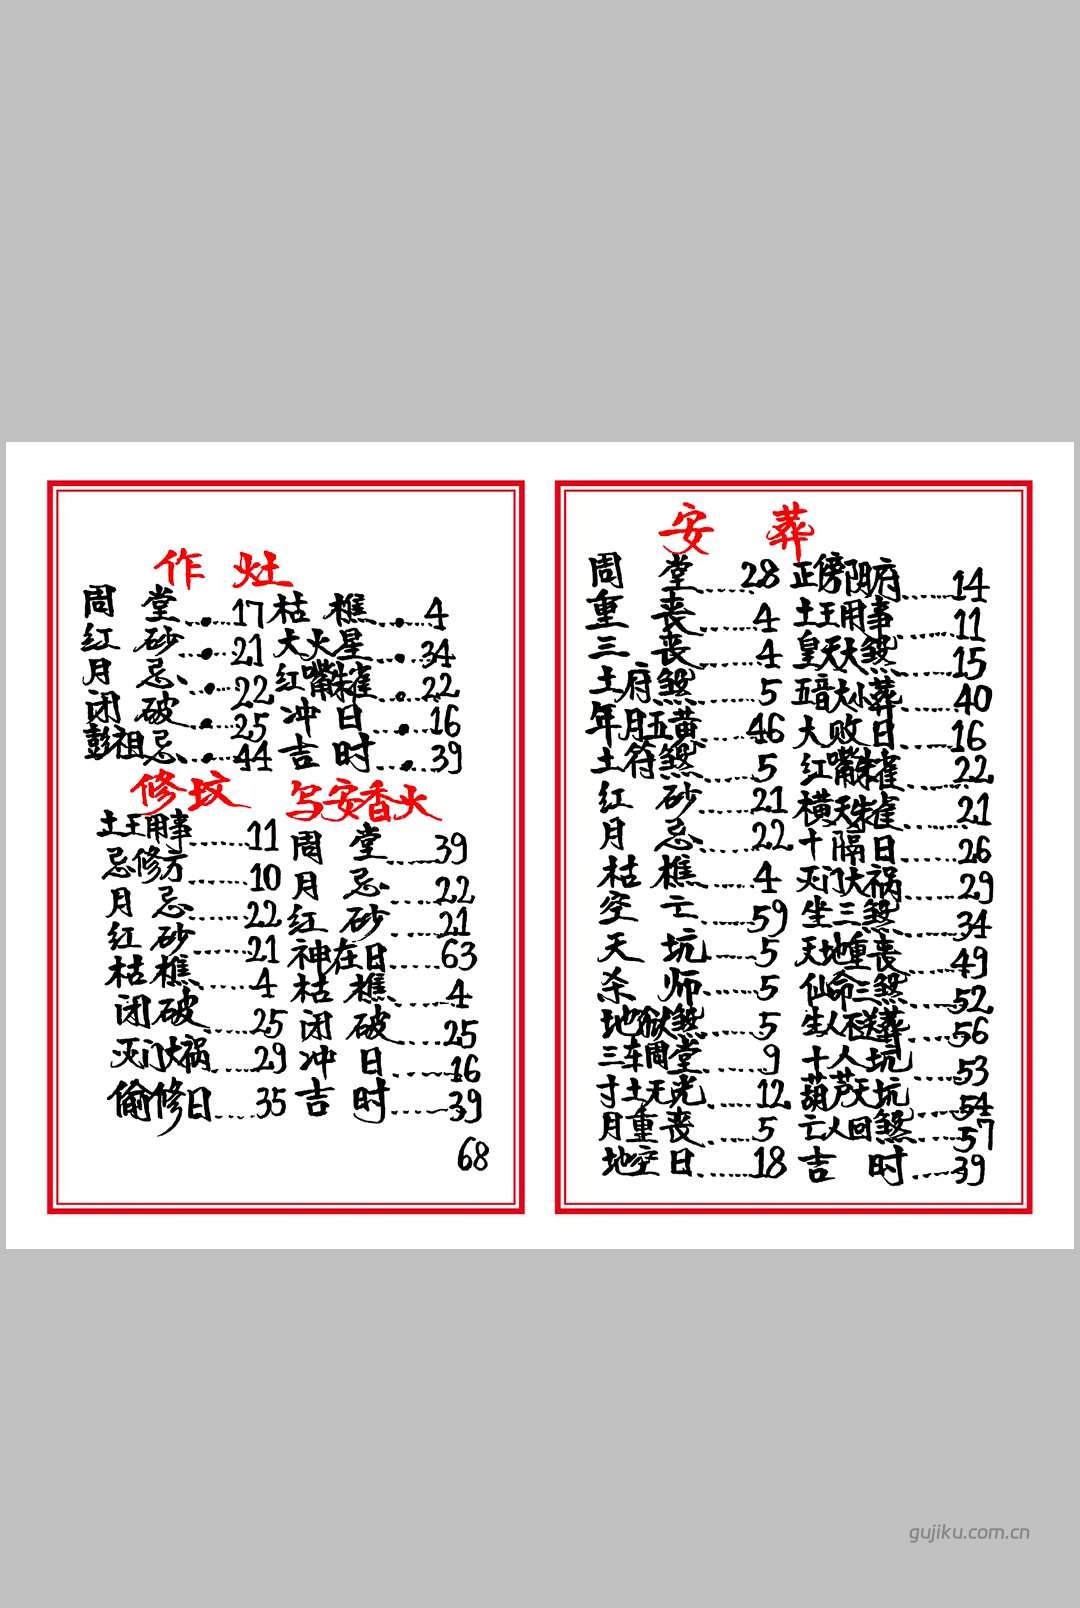 作灶
周堂......17
红砂......21
月忌......22
闭破......25
彭祖忌......44
枯樵......4
大火星......34
红嘴朱雀......22
冲日......16
吉时......39
修坟
土王用事......11
忌修方......10
月忌......22
红砂......21
枯樵......4
闭破......25
灭门大祸......29
偷修日......35
写安香火
周堂......39
月忌......22
红砂......21
神在日......63
枯樵......4
闭破......25
冲日......16
吉时......39
68
安葬
周堂......28
重丧......4
三丧......4
土府煞......5
年月五黄......46
土符煞......5
红砂......21
月忌......22
枯樵......4
空亡......59
天坑......5
杀师......5
地狱煞......5
三车周堂......9
寸土无光......12
月重丧......5
地空日......18
正傍阴府......14
土王用事......11
皇天大煞......15
五音大小葬......40
大败日......16
红嘴朱雀......22
横天朱雀......21
十隔日......26
灭门大祸......29
坐三煞......34
天地重丧......49
仙命三煞......52
生人不送葬......56
十人坑......53
葫芦天坑......54
亡人回煞......57
吉时......39
gujiku.com.cn